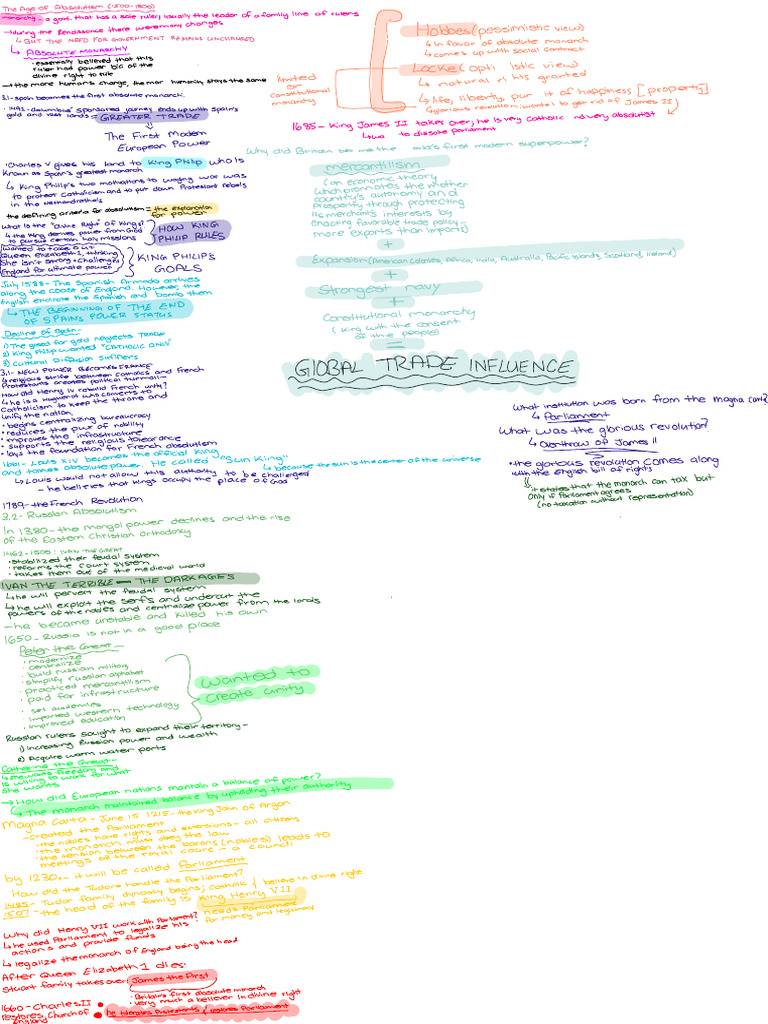 The Age of Absolutism (1500-1800)
monarchy - a govt. that has a sole ruler; usually the leader of a family line of rulers
→ during the Renaissance there were many changes
↳ BUT THE NEED FOR GOVERNMENT REMAINS UNCHANGED
↳ ABSOLUTE MONARCHY
• essentially believed that this
ruler had power b/c of the
divine right to rule
→ the more humans change, the mor monarchy stays the same
3.1 - spain becomes the first absolute monarch.
• 1492 - Columbus' sponsored journey ends up with Spain's
gold and vast lands = GREATER TRADE
The First Modern
European Power
• Charles V gives his land to King Philip who is
known as Spain's greatest monarch
↳ King Philip's two motivations to waging war was
to protect catholicism and to put down Protestant rebels
in the Netherlands
the defining criteria for absolutism = the exploration
for power
What is the "Divine Right of Kings"?
↳ the King derives power from God
to pursue certain holy missions
HOW KING
PHILIP RULES
wanted to take out
Queen Elizabeth 1, thinking
She isn't strong + challenges
England for ultimate power
KING PHILIP'S
GOALS
July 1588 - The Spanish Armada arrives
along the coast of England. However, the
English encircle the Spanish and bomb them
↳ THE BEGINNING OF THE END
OF SPAINS POWER STATUS
Decline of Spain -
1) The need for gold neglects TRADE
2) King Philip wanted "CATHOLIC ONLY"
3) Cultural Diffusion suffers
3.1 - NEW POWER BECOMES FRANCE
↳ religious strife between catholics and French
Protestants creates political turmoil -
How did Henry IV rebuild French unity?
↳ he is a huguenot who converts to
Catholicism to keep the throne and
unify the nation.
• begins centralizing bureaucracy
• reduces the pwr of nobility
• improves the infrastructure
• supports the religious tolerance
• lays the foundation for French absolutism
1661 - Louis XIV becomes the official King
and takes absolute power. He called "Sun King"
↳ because the sun is the center of the universe
↳ Louis would not allow this authority to be challenged
- he believes that kings occupy the place of God
1789 - the French Revolution
3.2 - Russian Absolutism
In 1380 - the mongol power declines and the rise
of the Eastern Christian Orthodoxy
1462-1505: IVAN THE GREAT
• stabilized their feudal system
• reforms the court system
• takes them out of the medieval world
IVAN THE TERRIBLE — THE DARK AGES
↳ he will pervert the feudal system
↳ he will exploit the serfs and undercut the
powers of the nobles and centralize power from the lands
- he became unstable and killed his own
1650 - Russia is not in a good place
Peter the Great -
• modernize
• centralize
• build russian military
• simplify russian alphabet
• practiced mercantilism
• paid for infrastructure
• set academies
• imported western technology
• improved education
wanted to
create unity
Russian rulers sought to expand their territory -
1) increasing Russian power and wealth
2) Acquire warm water ports
Catherine the Great -
is willing to work for what
she wants
→ How did European nations maintain a balance of power?
↳ The monarch maintained balance by upholding their authority
Magna Carta - June 15 1215 - the king John of
- created the Parliament
• the nobles have rights and extensions - all citizens
• the monarch must obey the law
• the tension between the barons (nobles) leads to
meetings of the royal court - a council
by 1230s - it will be called Parliament
How did the Tudors handle the Parliament?
1485 - Tudor family dynasty begins; catholic & believe in divine right
1507 - the head of the family is King Henry VII
needs Parliament
for money and legitimacy
Why did Henry VII work with Parliament?
↳ he used Parliament to legalize his
actions and provide funds
↳ legalize the monarch of England being the head
After Queen Elizabeth 1 dies:
Stuart family takes over: James the First
• Britain's first absolute monarch
• very much a believer in divine right
1660 - Charles II
restores Church of
England
he tolerates Protestants & restores Parliament
limited
or
constitutional
monarchy
Hobbes (pessimistic view)
↳ in favor of absolute monarch
↳ comes up with social contract
Locke (opti istic view)
↳ natural ri hts granted
↳ life, liberty, pur it of happiness [property]
↳ glorious revolution: want to get rid of James II
1685 - King James II takes over; he is very Catholic nd very absolutist
↳ wa to dissolve parliament
Why did Britain be me the rld's first modern superpower?
mercantilism
(an economic theory
which promotes the mother
country's autonomy and
prosperity through protecting
its merchant's interests by
enacting favorable trade policy -
more exports than imports)
+
Expansion (American Colonies, Africa, India, Australia, Pacific Islands, Scotland, Ireland)
+
Strongest navy
+
Constitutional monarchy
( king with the consent
of the people)
=
GLOBAL TRADE INFLUENCE
What institution was born from the magna carta?
↳ Parliament
What was the glorious revolution?
↳ overthrow of James II
• the glorious revolution comes along
with the English bill of rights
it states that the monarch can tax but
only if Parliament agrees
(no taxation without representation)